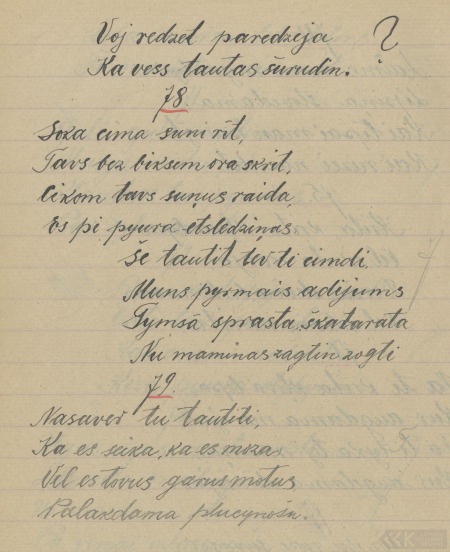 Voj redzet paredzeja ?
Ka vess tautas šurudin.
78
Soka cima suni rit,
Tavs bez biksem ora skrit,
Cikom tavs sunus raida,
Es pi pyura etsledzinas
Še tautit tev ti cimdi,
Muns pyrmais adijums
Tymsā sprasta, škatarata
Nu maminas zagtin zogti
79.
Nasaver tu tautiti,
Ka es seika, ka es moza,
Vel es tovus garus motus
Palaxdama plucynošu.